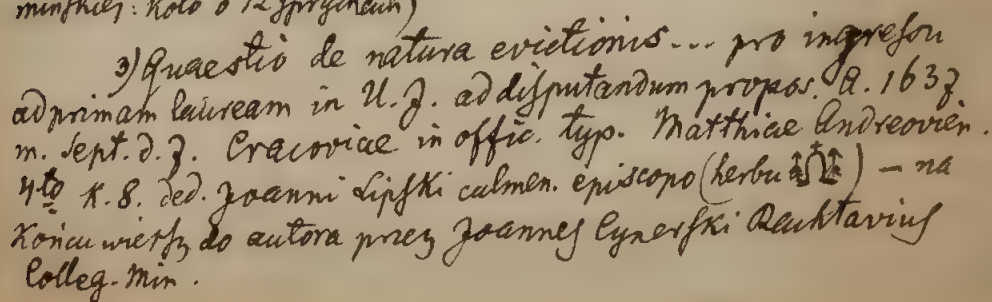 mińskiej: Koło o 12 sprychach)
3) Quaestio de natura evictionis... pro ingressu
ad primam lauream in U. J. ad disputandum propos. A. 1637
m. Sept. d. 7. Cracoviae in offic. typ. Matthiae Andreovien.
4to K. 8. ded. Joanni Lipski culmen. episcopo (herbu ) – na
Końcu wiersz do autora przez Joannes Cynerski Rachtavius
Colleg. Min.